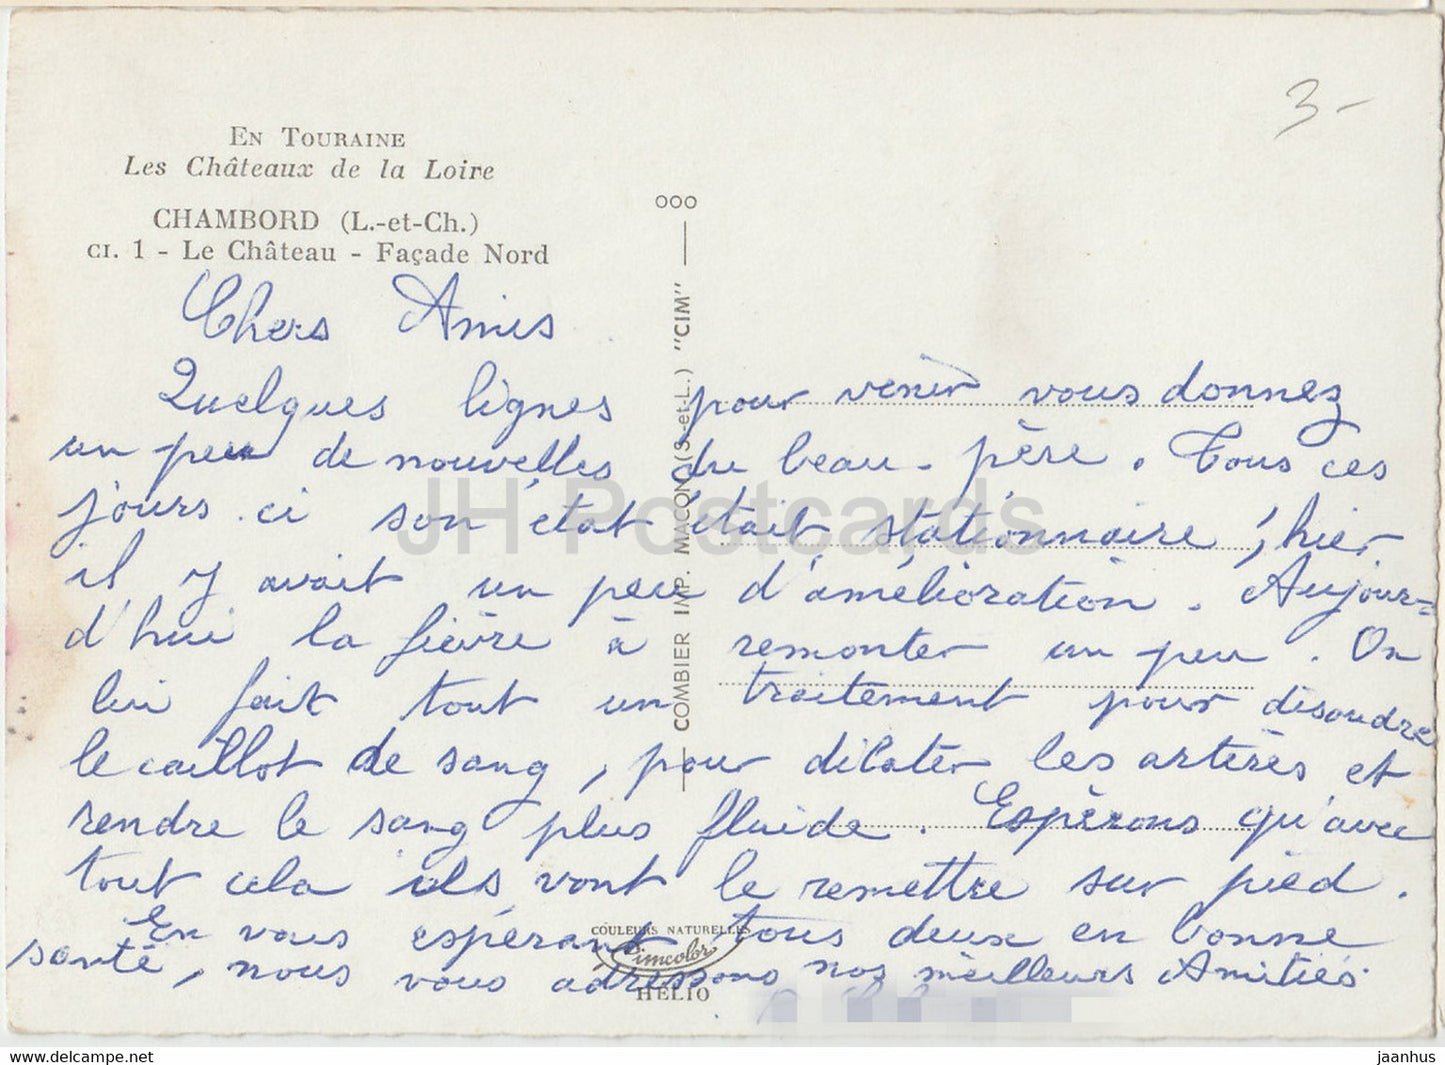 3-
EN TOURAINE
Les Châteaux de la Loire
CHAMBORD (L.-et-Ch.)
CI. 1 - Le Château - Façade Nord
ooo
COMBIER IMP. MACON (S.-et-L.) "CIM"
Chers Amis
Quelques lignes pour venir vous donnez
un peu de nouvelles du beau-père. Tous ces
jours ci son état était stationnaire, hier
il y avait un peu d'amélioration. Aujour=
d'hui la fièvre à remonter un peu. On
lui fait tout un traitement pour disoudre
le caillot de sang, pour dilater les artères et
rendre le sang plus fluide. Espérons qu'avec
tout cela ils vont le remettre sur pied.
En vous espérant tous deux en bonne
santé, nous vous adressons nos meilleurs Amitiés.
COULEURS NATURELLES
Cimcolor
HÉLIO
JH Postcards
www.hippostcard.com
jaanhus